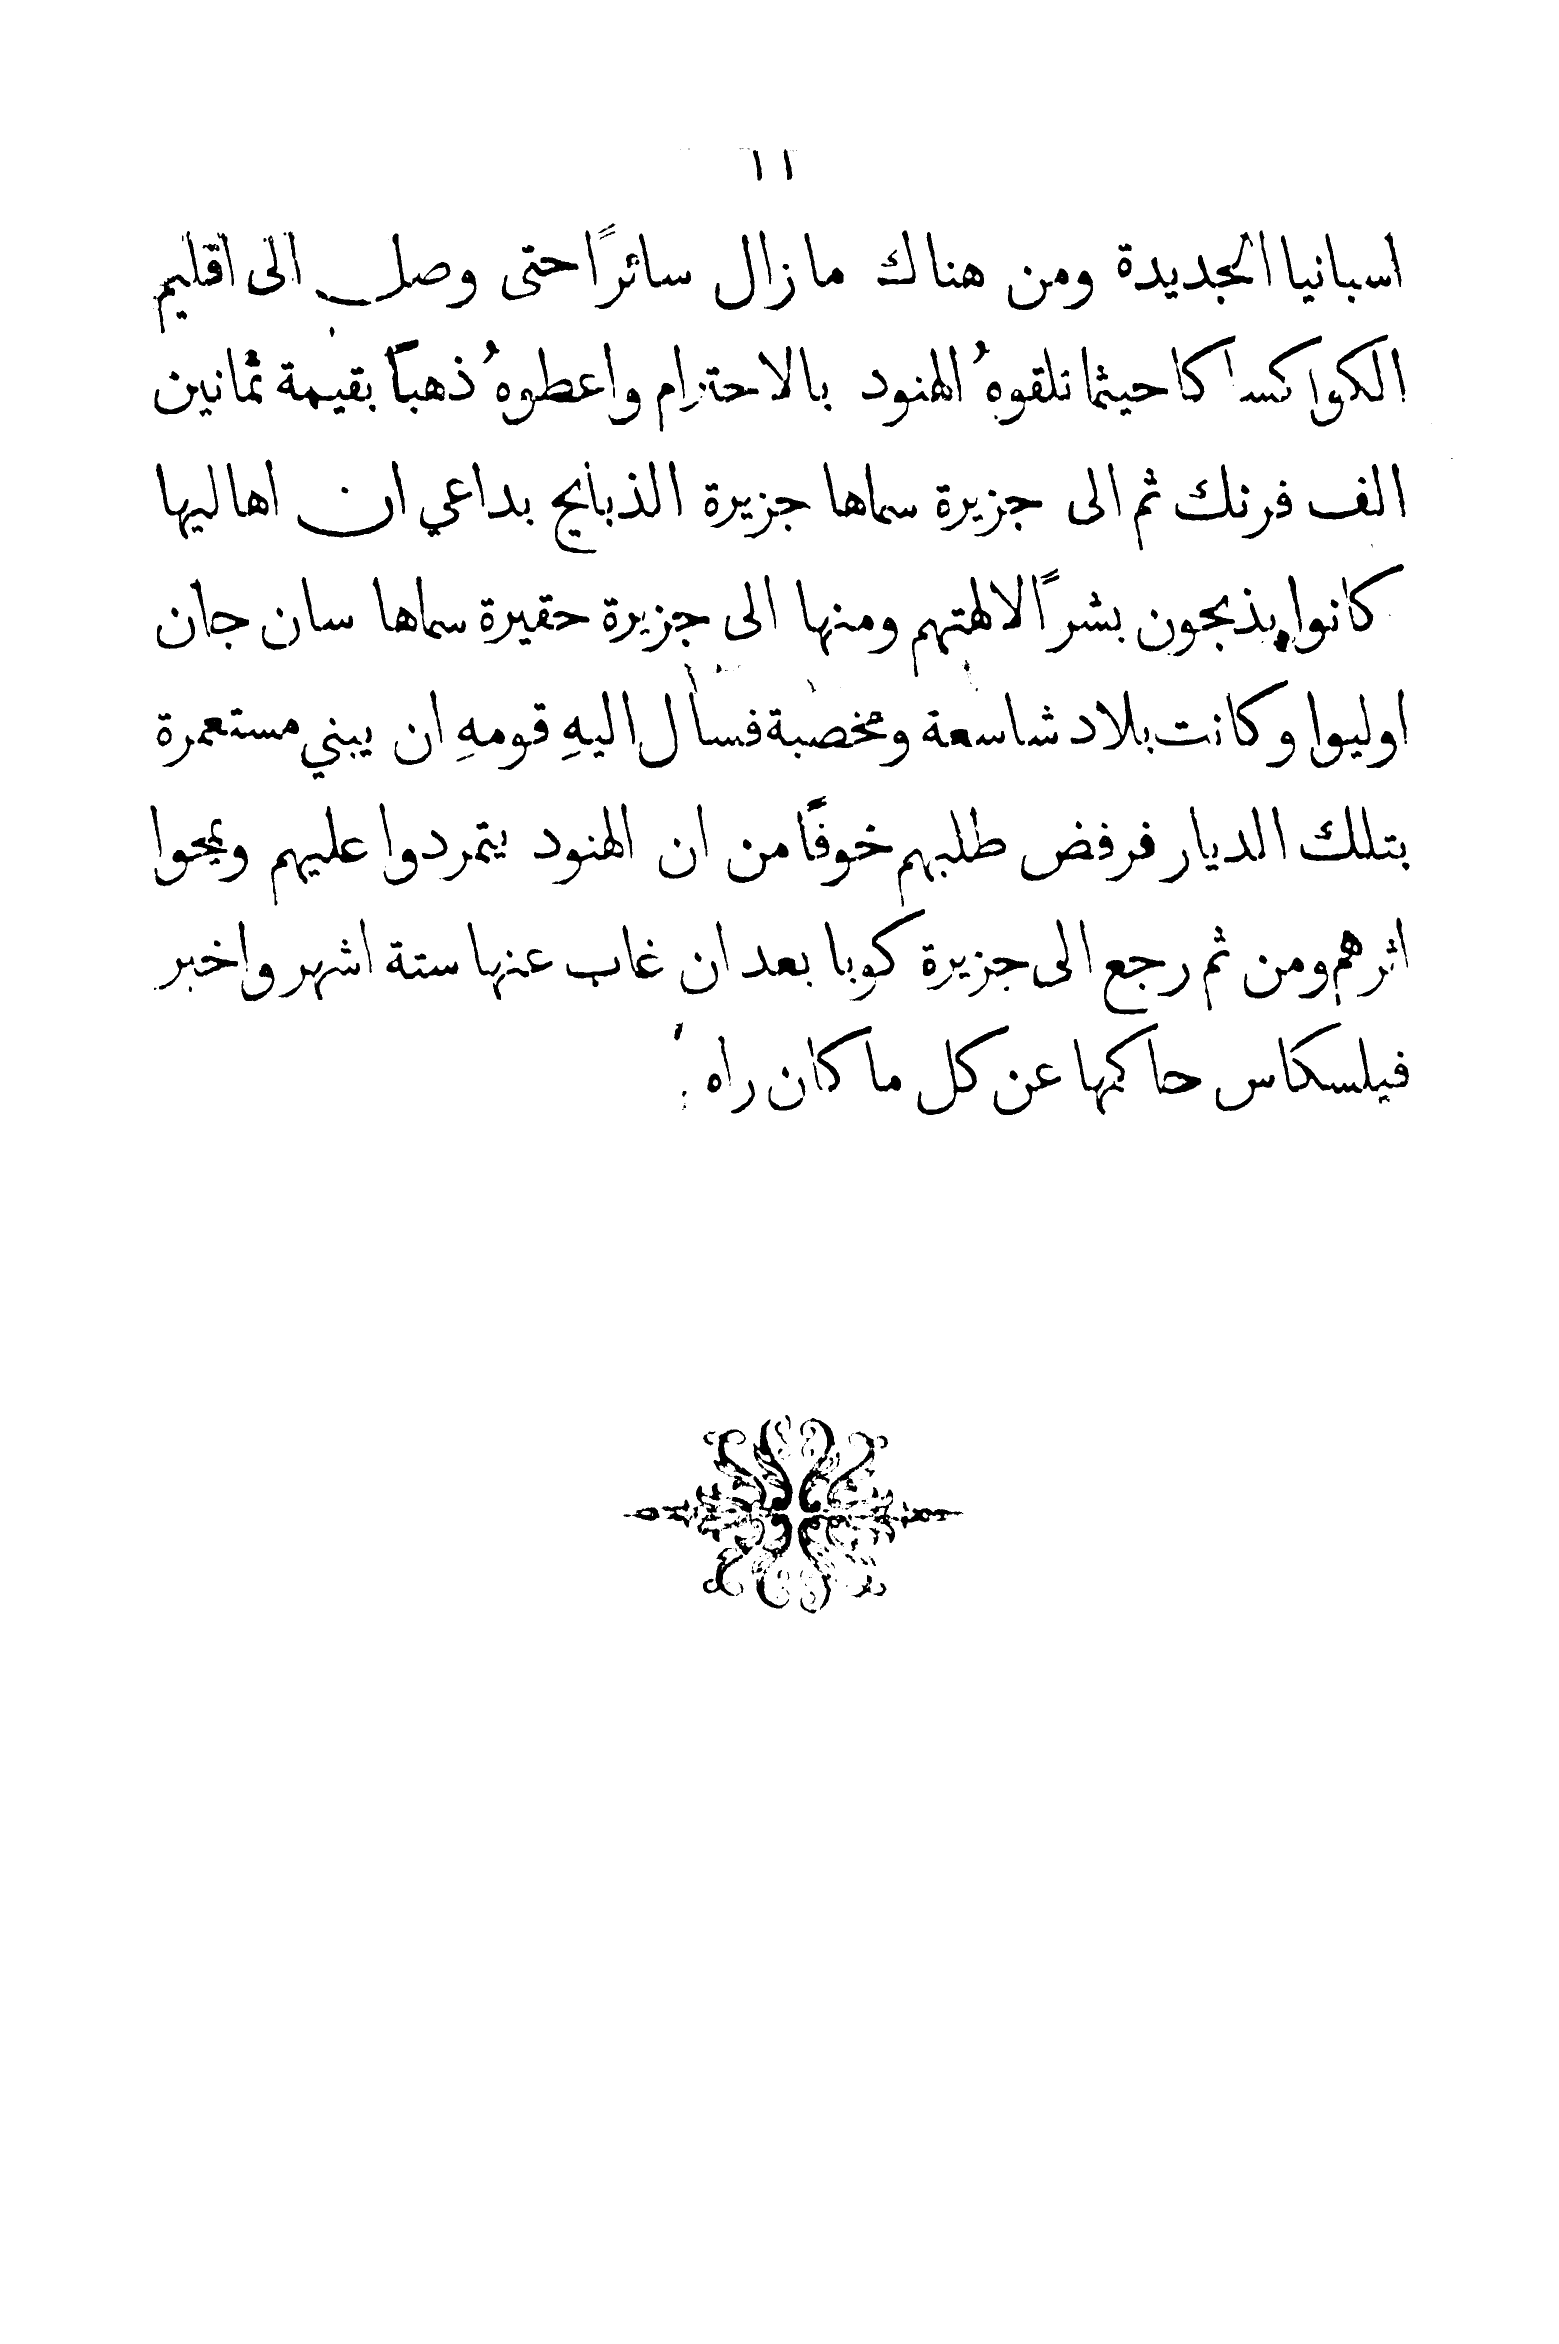 ١١
اسبانيا الجديدة ومن هناك ما زال سائرًا حتى وصل الى اقليم
الكواكساكا حيثما تلقوهُ الهنود بالاحترام واعطوهُ ذهبًا بقيمة ثمانين
الف فرنك ثم الى جزيرة سماها جزيرة الذبايح بداعي ان اهاليها
كانوا يذبحون بشرًا لالهتهم ومنها الى جزيرة حقيرة سماها سان جان
اوليوا وكانت بلاد شاسعة ومخصبة فسأل اليهِ قومهِ ان يبني مستعمرة
بتلك الديار فرفض طلبهم خوفًا من ان الهنود يتمردوا عليهم ويمحوا
اثرهم ومن ثم رجع الى جزيرة كوبا بعد ان غاب عنها ستة اشهر واخبر
فيلسكاس حاكمها عن كل ما كان راهُ